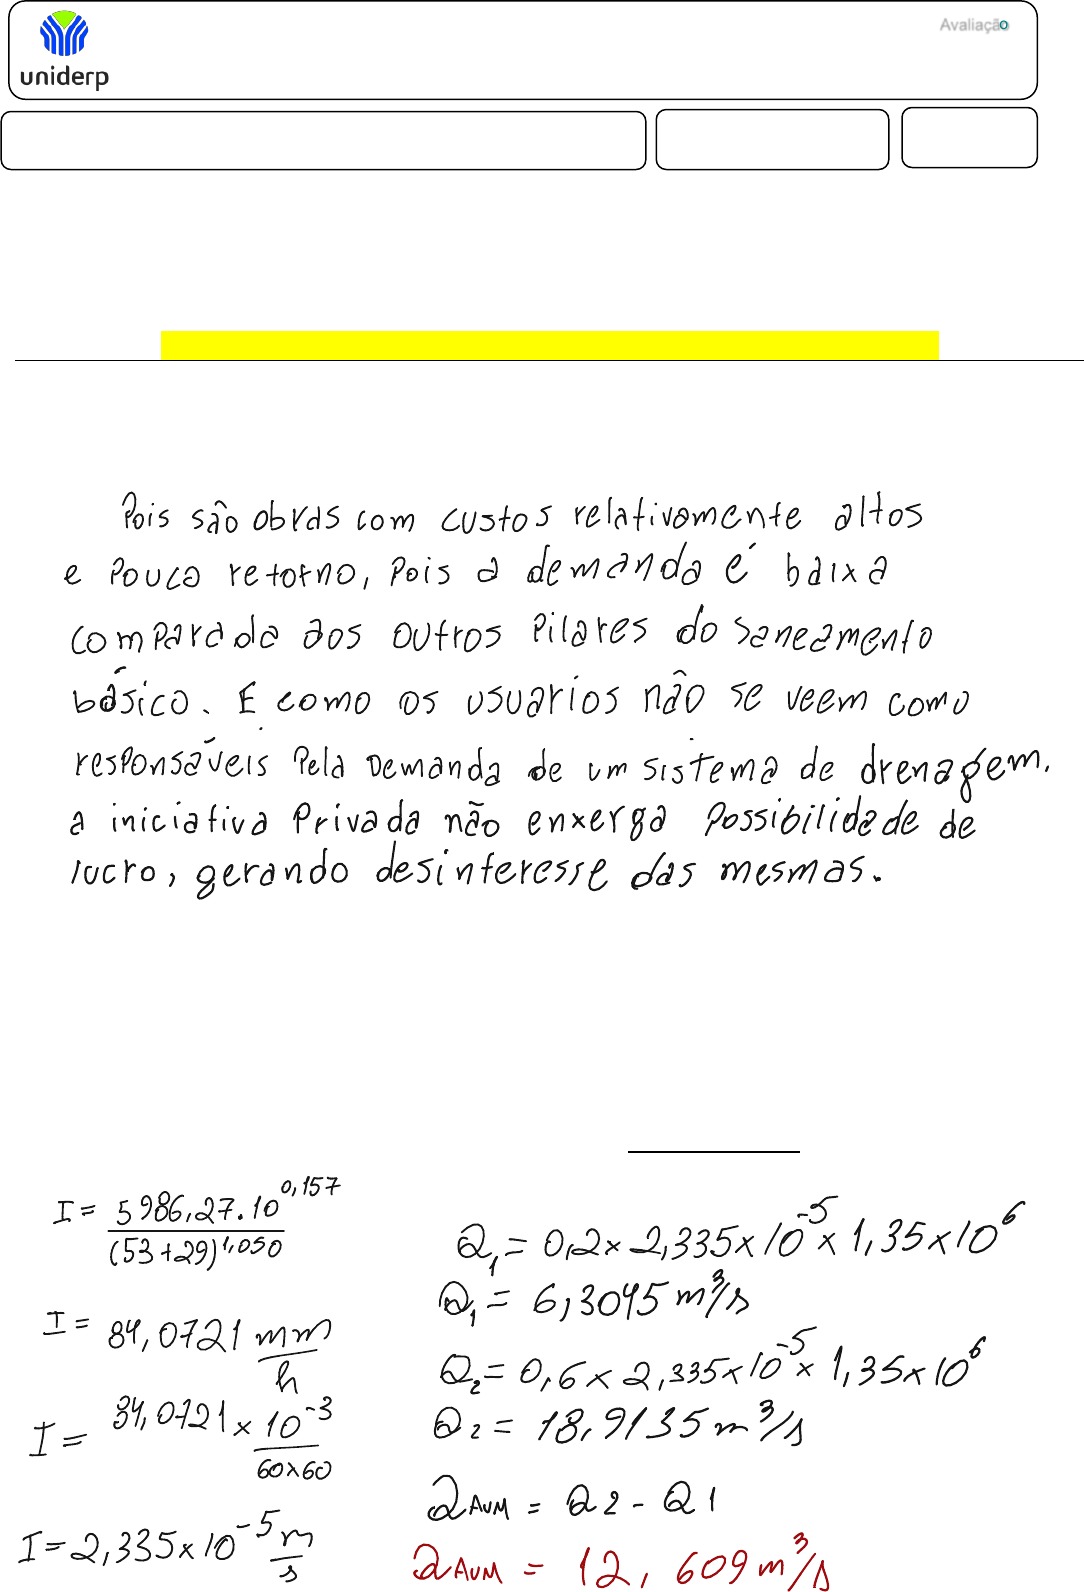 Avaliação
uniderp
Pois são obras com custos relativamente altos
e pouco retorno, pois a demanda é baixa
comparada aos outros pilares do saneamento
básico. E como os usuarios não se veem como
responsáveis pela demanda de um sistema de drenagem.
a iniciativa privada não enxerga possibilidade de
lucro, gerando desinteresse das mesmas.
I = 5986,27.10^0,157 / (53+29)^1,050
I = 84,0721 mm/h
I = 84,0721 x 10^-3 / 60x60
I = 2,335x10^-5 m/s
Q1 = 0,2x 2,335x10^-5 x 1,35x10^6
Q1 = 6,3045 m³/s
Q2 = 0,6 x 2,335x10^-5 x 1,35x10^6
Q2 = 18,9135 m³/s
QAUM = Q2 - Q1
QAUM = 12,609 m³/s